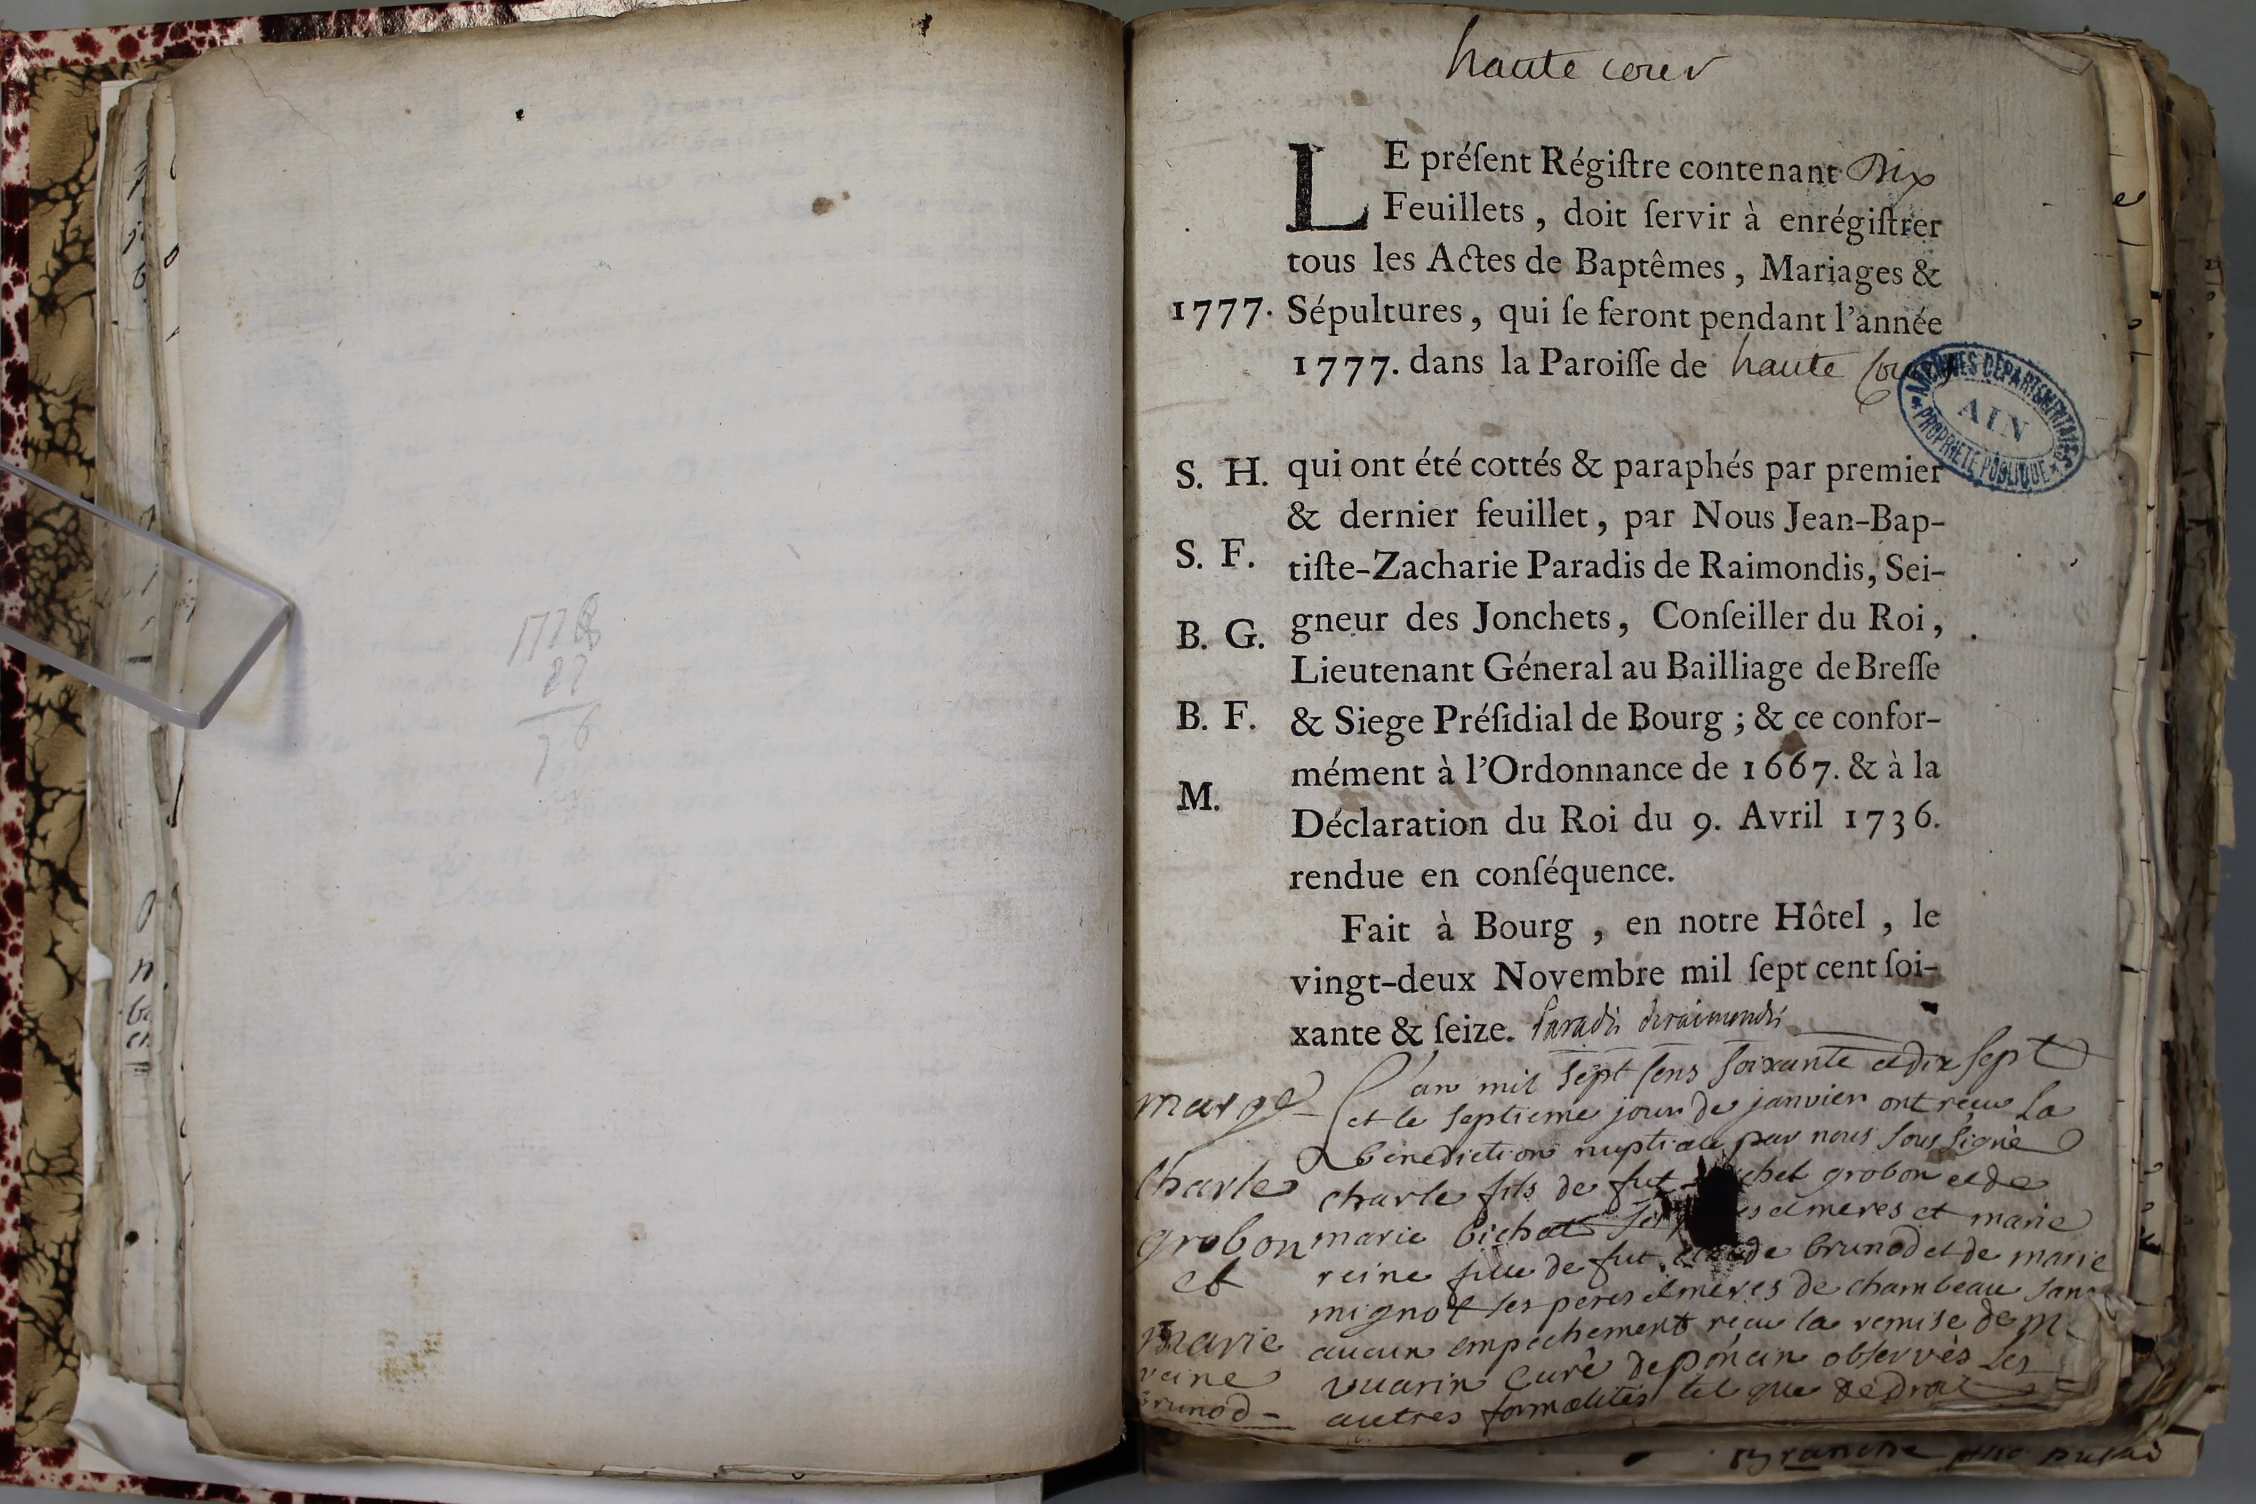 1778
22
haute cour
LE préſent Régiſtre contenant Dix
Feuillets, doit ſervir à enrégiſtrer
tous les Actes de Baptêmes, Mariages &
1777. Sépultures, qui ſe feront pendant l'année
1777. dans la Paroiſſe de haute Cour
ARCHIVES DÉPARTEMENTALES
AIN
PROPRIÉTÉ PUBLIQUE
S. H. qui ont été cottés & paraphés par premier
& dernier feuillet, par Nous Jean-Bap-
S. F. tiſte-Zacharie Paradis de Raimondis, Sei-
B. G. gneur des Jonchets, Conſeiller du Roi,
Lieutenant Géneral au Bailliage de Breſſe
B. F. & Siege Préſidial de Bourg; & ce confor-
mément à l'Ordonnance de 1667. & à la
M. Déclaration du Roi du 9. Avril 1736.
rendue en conſéquence.
Fait à Bourg, en notre Hôtel, le
vingt-deux Novembre mil ſept cent ſoi-
xante & ſeize. Paradis deraimondis
L'an mil sept sens soixante et dix sept
marge et le septieme jour de janvier ont reçu la
benediction nuptiale par nous sous signé
Charle charle fils de fut chel grobon et de
grobon marie bichat ses es et meres et marie
et reine fille de fut claude brunod et de marie
mignot ses peres et meres de chambeau sans
marie aucun empechement reçu la remise de m
reine vuarin curé de poncin observés les
brunod autres formalités tel que de droit